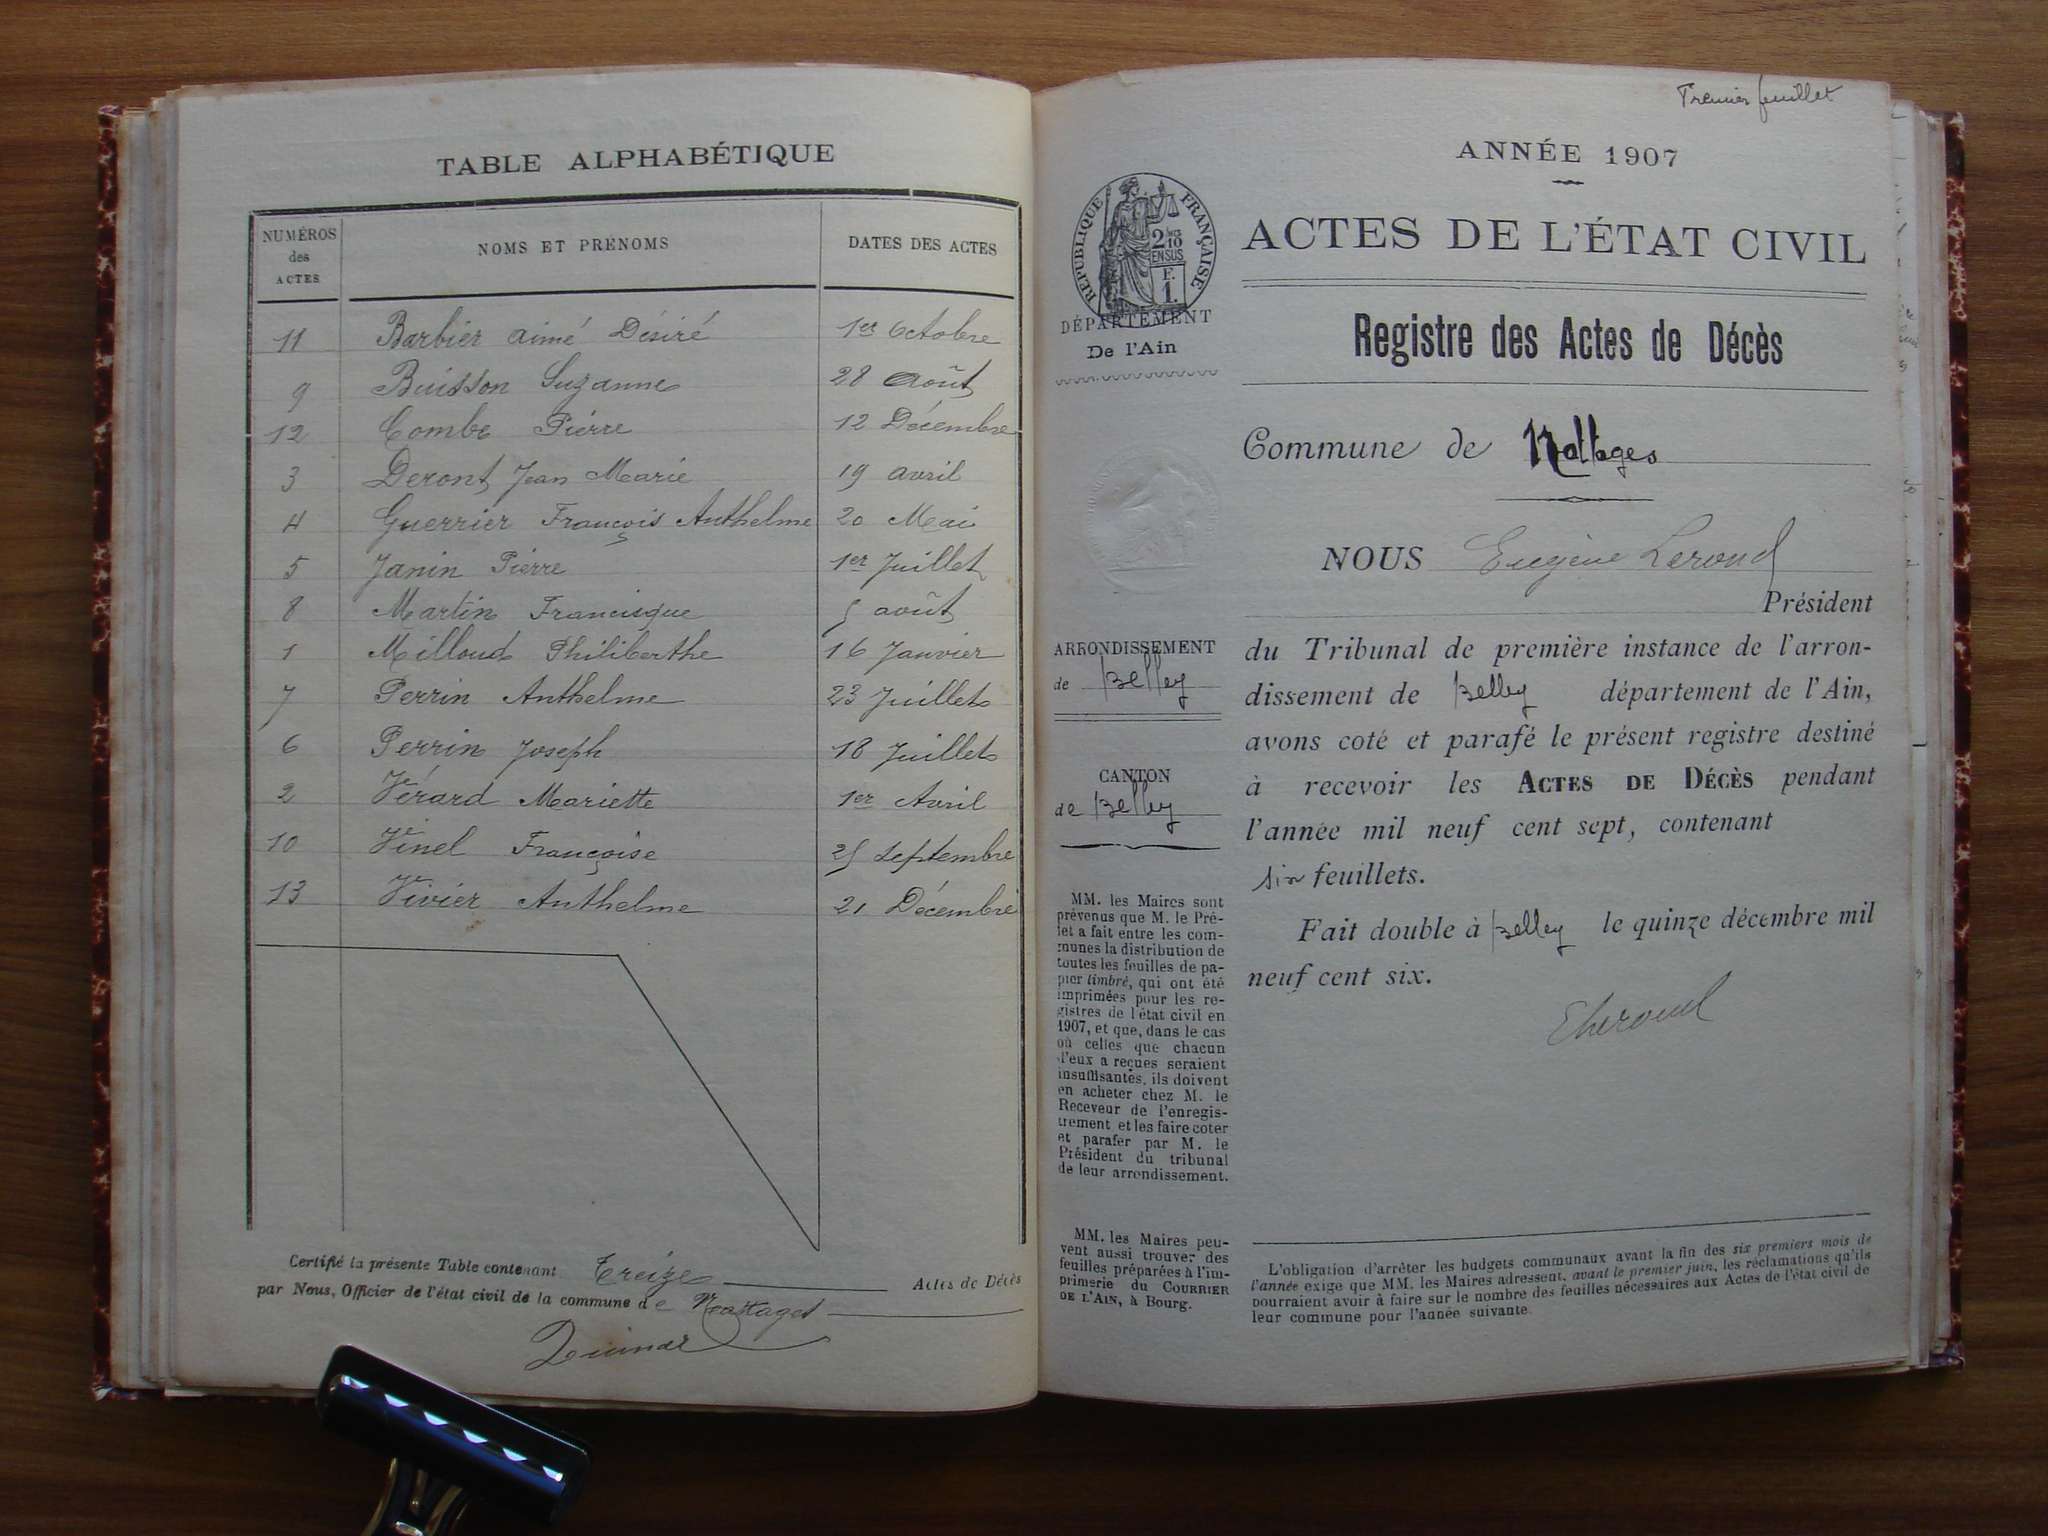 TABLE ALPHABÉTIQUE
NUMÉROS des ACTES
NOMS ET PRÉNOMS
DATES DES ACTES
11 Barbier Aimé Désiré 1er Octobre
9 Buisson Suzanne 28 Août
12 Combe Pierre 12 Décembre
3 Deront Jean Marie 19 avril
4 Guerrier François Anthelme 20 Mai
5 Janin Pierre 1er Juillet
8 Martin Francisque 5 août
1 Milloud Philiberthe 16 Janvier
7 Perrin Anthelme 23 Juillet
6 Perrin Joseph 18 Juillet
2 Vérard Mariette 1er Avril
10 Vinel Françoise 25 Septembre
13 Vivier Anthelme 21 Décembre
Certifié la présente Table contenant Treize Actes de Décès
par Nous, Officier de l'état civil de la commune de Nattages
Premier feuillet
ANNÉE 1907
RÉPUBLIQUE FRANÇAISE
2 10
EN SUS
F.
1.
DÉPARTEMENT
De l'Ain
ACTES DE L'ÉTAT CIVIL
Registre des Actes de Décès
Commune de Nattages
NOUS Eugène Leroud
Président
ARRONDISSEMENT
de Belley
CANTON
de Belley
du Tribunal de première instance de l'arron-
dissement de Belley département de l'Ain,
avons coté et parafé le présent registre destiné
à recevoir les ACTES DE DÉCÈS pendant
l'année mil neuf cent sept, contenant
six feuillets.
Fait double à Belley le quinze décembre mil
neuf cent six.
MM. les Maires sont
prévenus que M. le Pré-
fet a fait entre les com-
munes la distribution de
toutes les feuilles de pa-
pier timbré, qui ont été
imprimées pour les re-
gistres de l'état civil en
1907, et que, dans le cas
où celles que chacun
d'eux a reçues seraient
insuffisantes, ils doivent
en acheter chez M. le
Receveur de l'enregis-
trement et les faire coter
et parafer par M. le
Président du tribunal
de leur arrondissement.
MM. les Maires peu-
vent aussi trouver des
feuilles préparées à l'im-
primerie du COURRIER
DE L'AIN, à Bourg.
L'obligation d'arrêter les budgets communaux avant la fin des six premiers mois de
l'année exige que MM. les Maires adressent, avant le premier juin, les réclamations qu'ils
pourraient avoir à faire sur le nombre des feuilles nécessaires aux Actes de l'état civil de
leur commune pour l'année suivante.